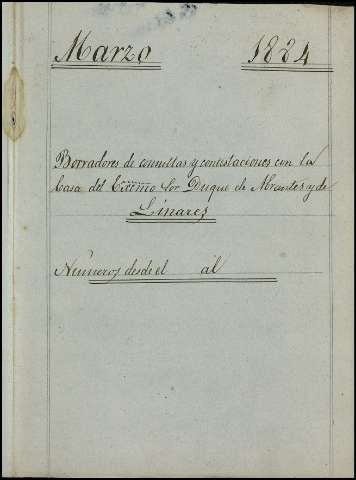 Marzo 1884
Borradores de consultas y contestaciones con la
Casa del Excmo Sor Duque de Abrantes y de
Linares
Números desde el al